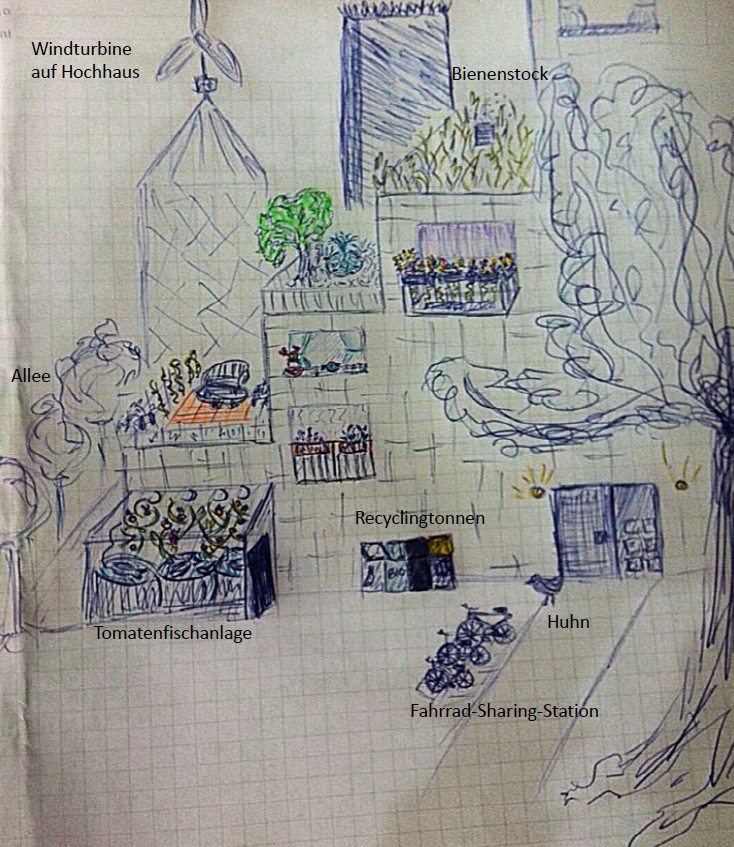 Windturbine
auf Hochhaus
Bienenstock
Allee
Recyclingtonnen
BIO
Tomatenfischanlage
Huhn
Fahrrad-Sharing-Station